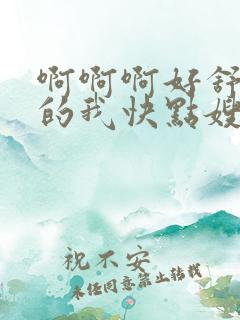 啊啊啊好舒
的我快點嫂
祝不安
未经同意禁止转载